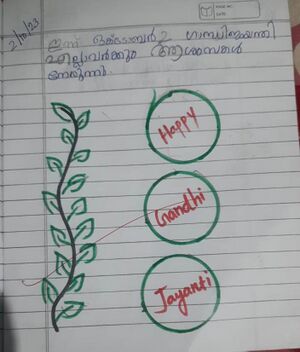 2/10/23
ഇന്ന് ഒക്ടോബർ 2 ഗാന്ധിജയന്തി
എല്ലാവർക്കും ആശംസകൾ
നേരുന്നു.
Happy
Gandhi
Jayanti